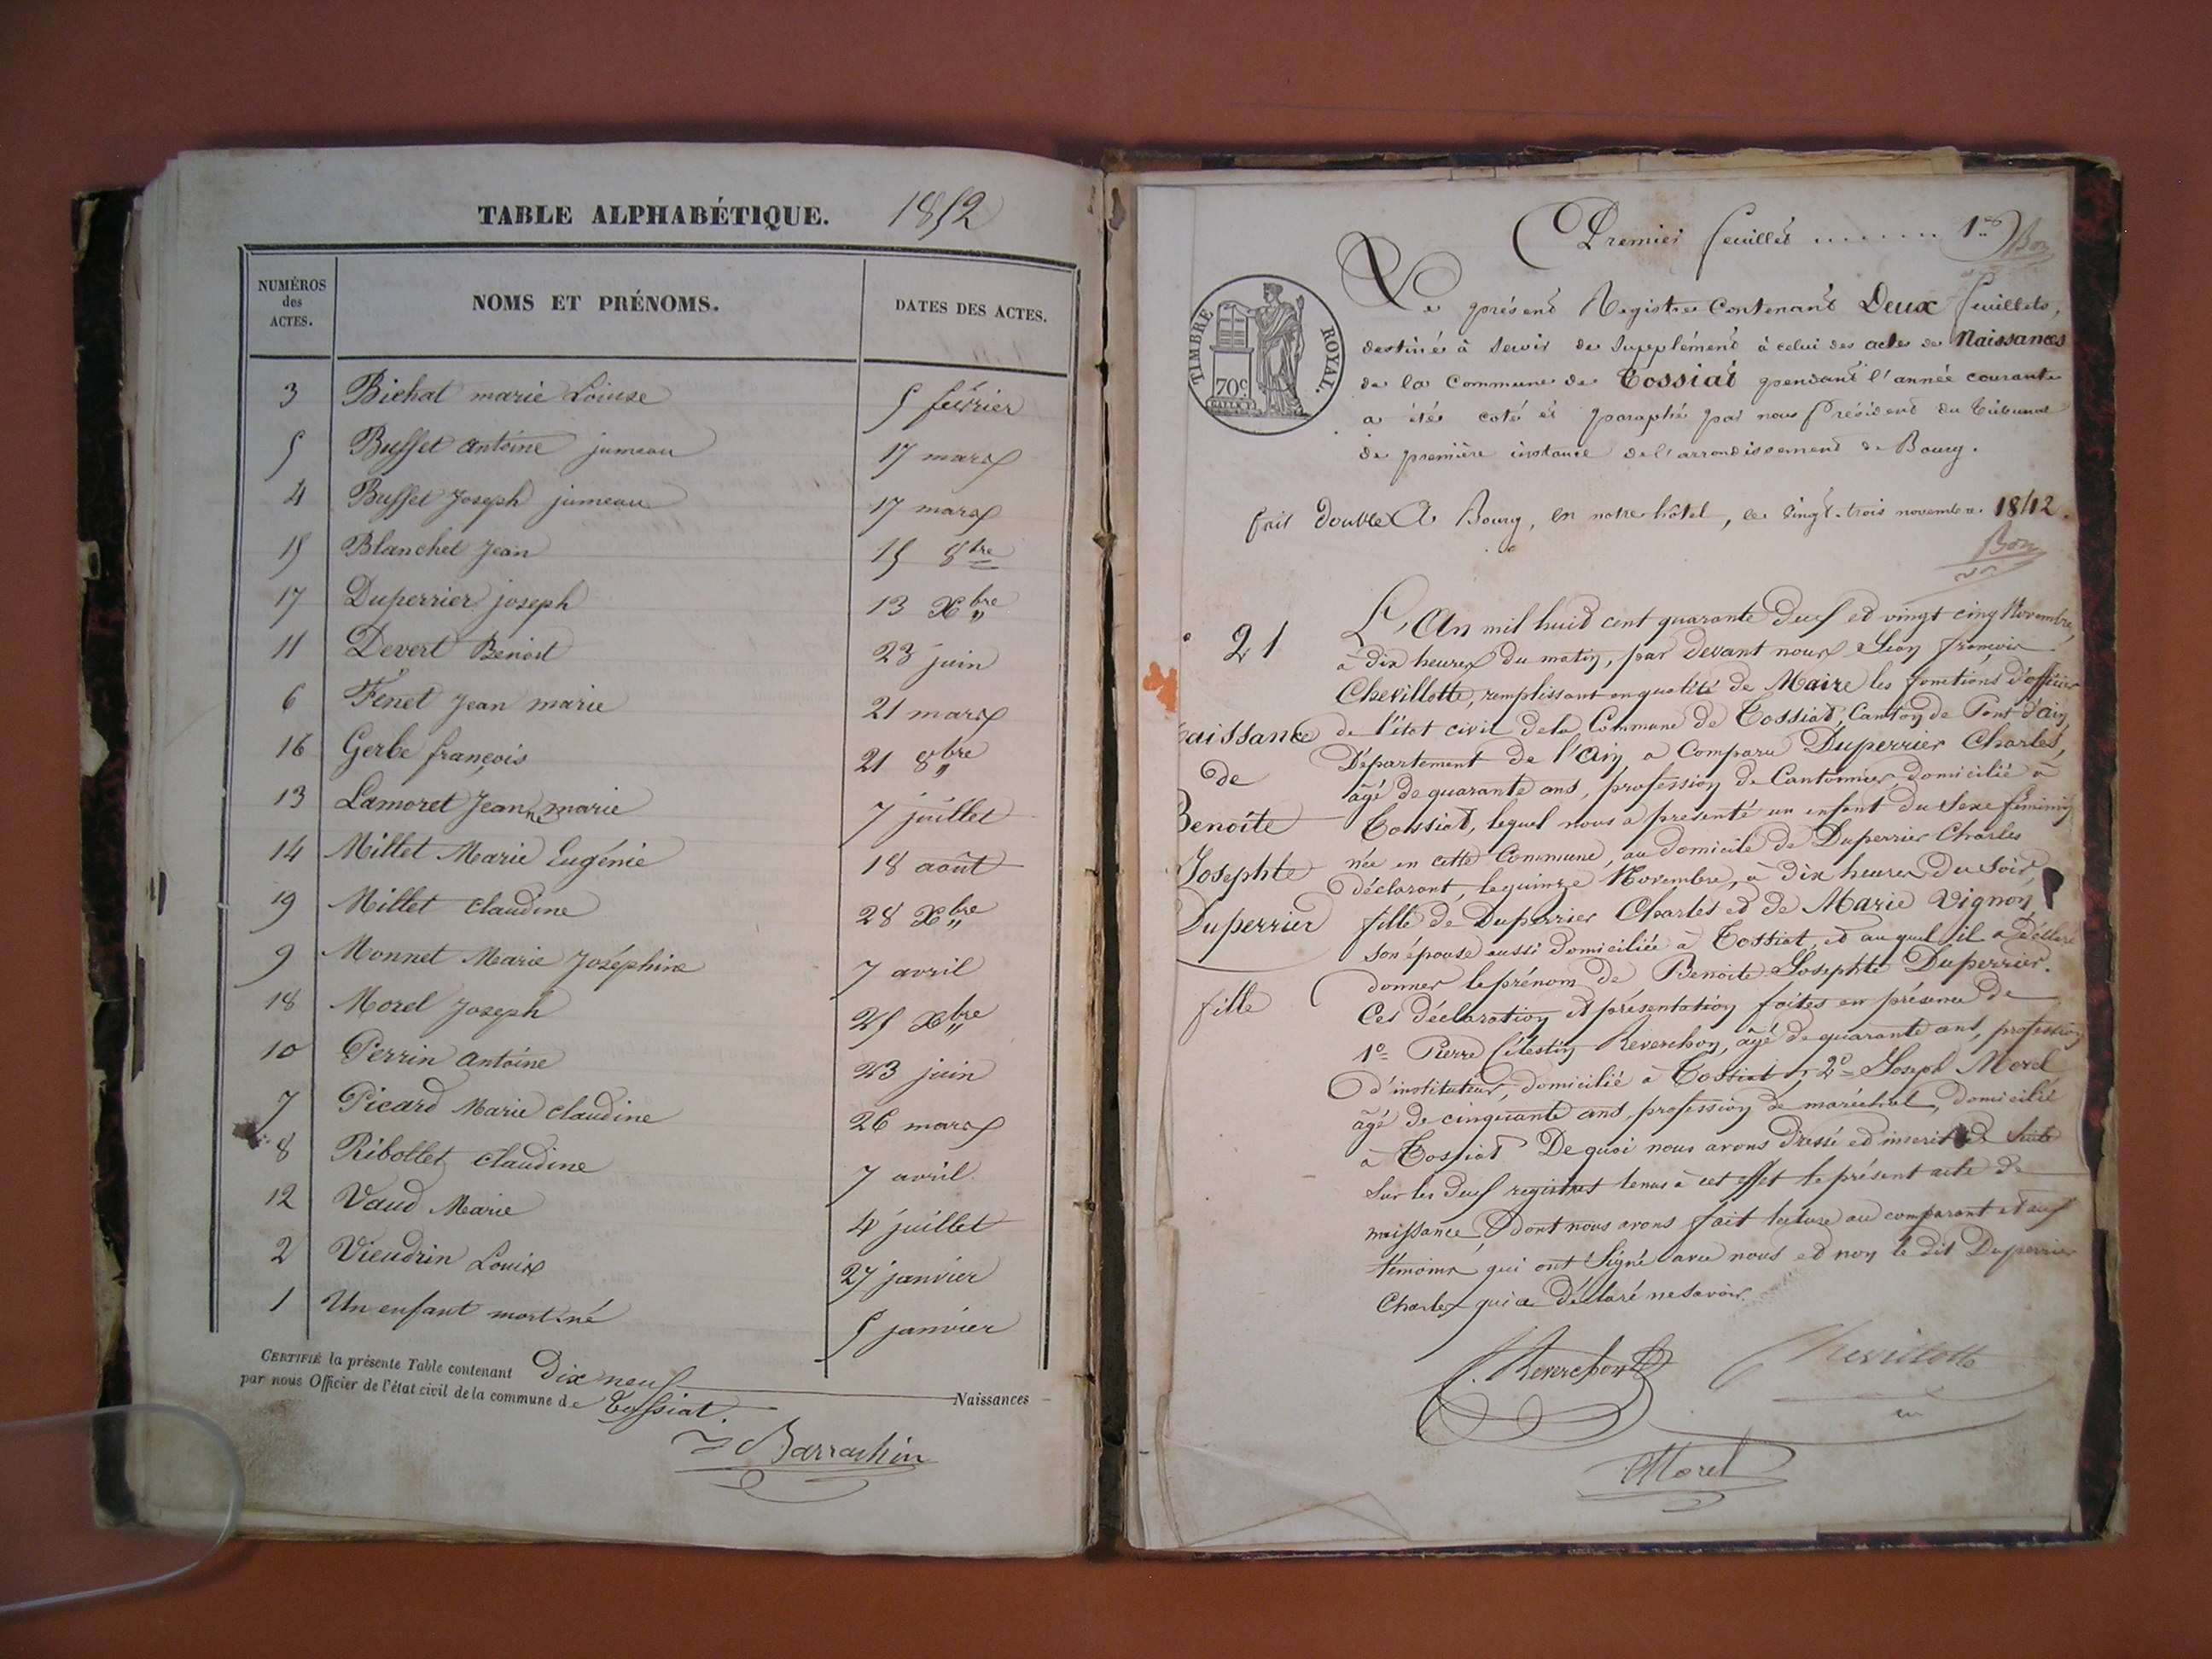 TABLE ALPHABÉTIQUE. 1852
NUMÉROS des ACTES. NOMS ET PRÉNOMS. DATES DES ACTES.
3 Bichat marie Loiuse 5 février
5 Buffet antoine jumeau 17 mars
4 Buffet Joseph jumeau 17 mars
15 Blanchet Jean 15 8bre
17 Duperrier joseph 13 Xbre
11 Devert Benoit 23 juin
6 Fenet Jean marie 21 mars
16 Gerbe françois 21 8bre
13 Lamoret Jeanne marie 7 juillet
14 Millet Marie Eugénie 18 août
19 Millet Claudine 28 Xbre
9 Monnet Marie Joséphine 7 avril
18 Morel Joseph 25 Xbre
10 Perrin Antoine 23 juin
7 Picard Marie Claudine 26 mars
8 Ribollet Claudine 7 avril
12 Vaud Marie 4 juillet
2 Vieudrin Louis 27 janvier
1 Un enfant mort-né 5 janvier
CERTIFIÉ la présente Table contenant Dix neuf Naissances
par nous Officier de l'état civil de la commune de Tossiat.
Barrachin
Premier feuillet ....... 1er Bon
TIMBRE ROYAL.
70c
Le présent Registre contenant Deux feuillets,
destiné à servir de supplément à celui des actes de Naissances
de la Commune de Tossiat pendant l'année courante
a été coté et paraphé par nous Président du Tribunal
de première instance de l'arrondissement de Bourg.
fait double A Bourg, en notre hôtel, le vingt-trois novembre 1842.
Bon
21
L'An mil huit cent quarante deux et vingt cinq Novembre,
à dix heures du matin, par devant nous Léon françois
Chevillotte, remplissant en qualité de Maire les fonctions d'officier
de l'état civil de la Commune de Tossiat, Canton de Pont d'ain,
Département de l'Ain, a Comparu Duperrier Charles,
âgé de quarante ans, profession de Cantonnier, domicilié à
Tossiat, lequel nous a présenté un enfant du sexe féminin
née en cette Commune, au domicile de Duperrier Charles
déclarant, le quinze Novembre, à dix heures du soir,
fille de Duperrier Charles et de Marie Vignon,
son épouse aussi domiciliée à Tossiat, et auquel il a déclaré
donner le prénom de Benoite Josephte Duperrier.
Ces déclaration et présentation faites en présence de
1o Pierre Célestin Reverchon, âgé de quarante ans, profession
d'instituteur, domicilié à Tossiat, 2o Joseph Morel
âgé de cinquante ans, profession de maréchal, domicilié
à Tossiat De quoi nous avons dressé et inscrit de suite
sur les deux registres tenus à cet effet le présent acte de
naissance, dont nous avons fait lecture au comparant et aux
témoins qui ont signé avec nous et non le dit Duperrier
Charles qui a déclaré ne savoir.
Naissance
de
Benoîte
Josephte
Duperrier
fille
Reverchon
Chevillotte
Morel